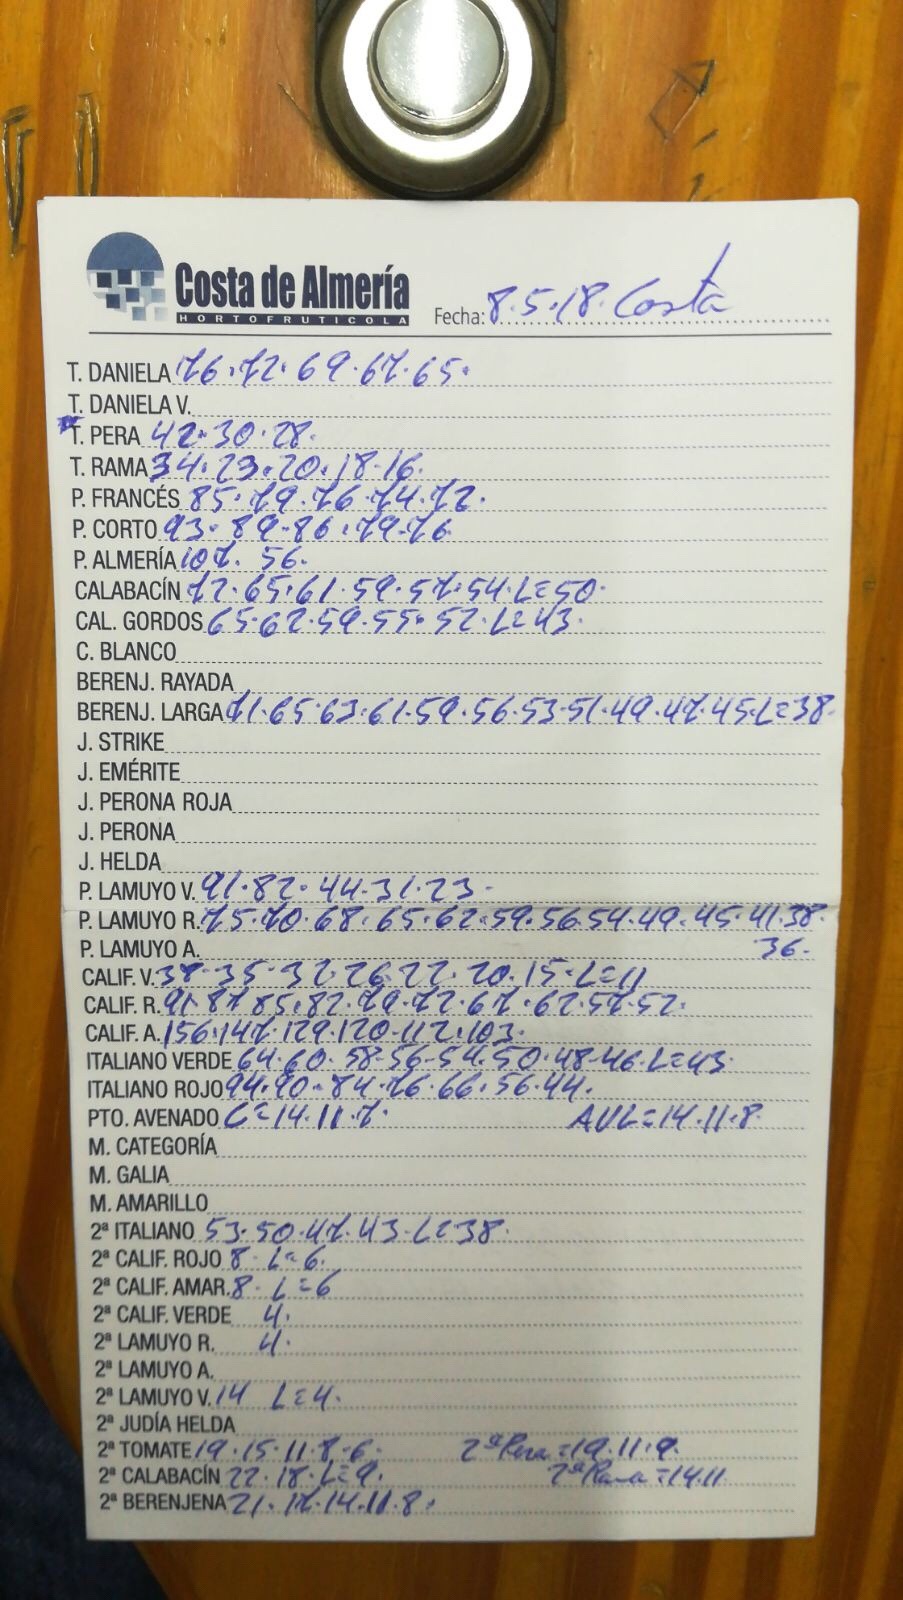 Costa de Almería
HORTOFRUTICOLA
Fecha: 8.5.18. Costa
T. DANIELA 76.72.69.67.65.
T. DANIELA V.
T. PERA 42.30.28.
T. RAMA 34.23.20.18.16.
P. FRANCÉS 85.79.76.74.72.
P. CORTO 93.89.86.79.76
P. ALMERÍA 107. 56.
CALABACÍN 72.65.61.59.57.54.L=50.
CAL. GORDOS 65.62.59.55.52.L=43.
C. BLANCO
BERENJ. RAYADA
BERENJ. LARGA 71.65.63.61.59.56.53.51.49.47.45.L=38.
J. STRIKE
J. EMÉRITE
J. PERONA ROJA
J. PERONA
J. HELDA
P. LAMUYO V. 91.82.44.31.23.
P. LAMUYO R. 75.70.68.65.62.59.56.54.49.45.41.38.
P. LAMUYO A. 36.
CALIF. V. 38.35.32.26.22.20.15.L=11
CALIF. R. 91.87.85.82.79.72.67.62.57.52.
CALIF. A. 156.147.129.120.112.103.
ITALIANO VERDE 64.60.58.56.54.50.48.46.L=43.
ITALIANO ROJO 94.90.84.76.66.56.44.
PTO. AVENADO C=14.11.7. AVL=14.11.8.
M. CATEGORÍA
M. GALIA
M. AMARILLO
2ª ITALIANO 53.50.47.43.L=38.
2ª CALIF. ROJO 8. L=6.
2ª CALIF. AMAR. 8. L=6
2ª CALIF. VERDE 4.
2ª LAMUYO R. 4.
2ª LAMUYO A.
2ª LAMUYO V. 14 L=4.
2ª JUDÍA HELDA
2ª TOMATE 19.15.11.8.6. 2ª Pera=19.11.9.
2ª CALABACÍN 22.18.L=9. 2ª Rama=14.11
2ª BERENJENA 21.17.14.11.8.